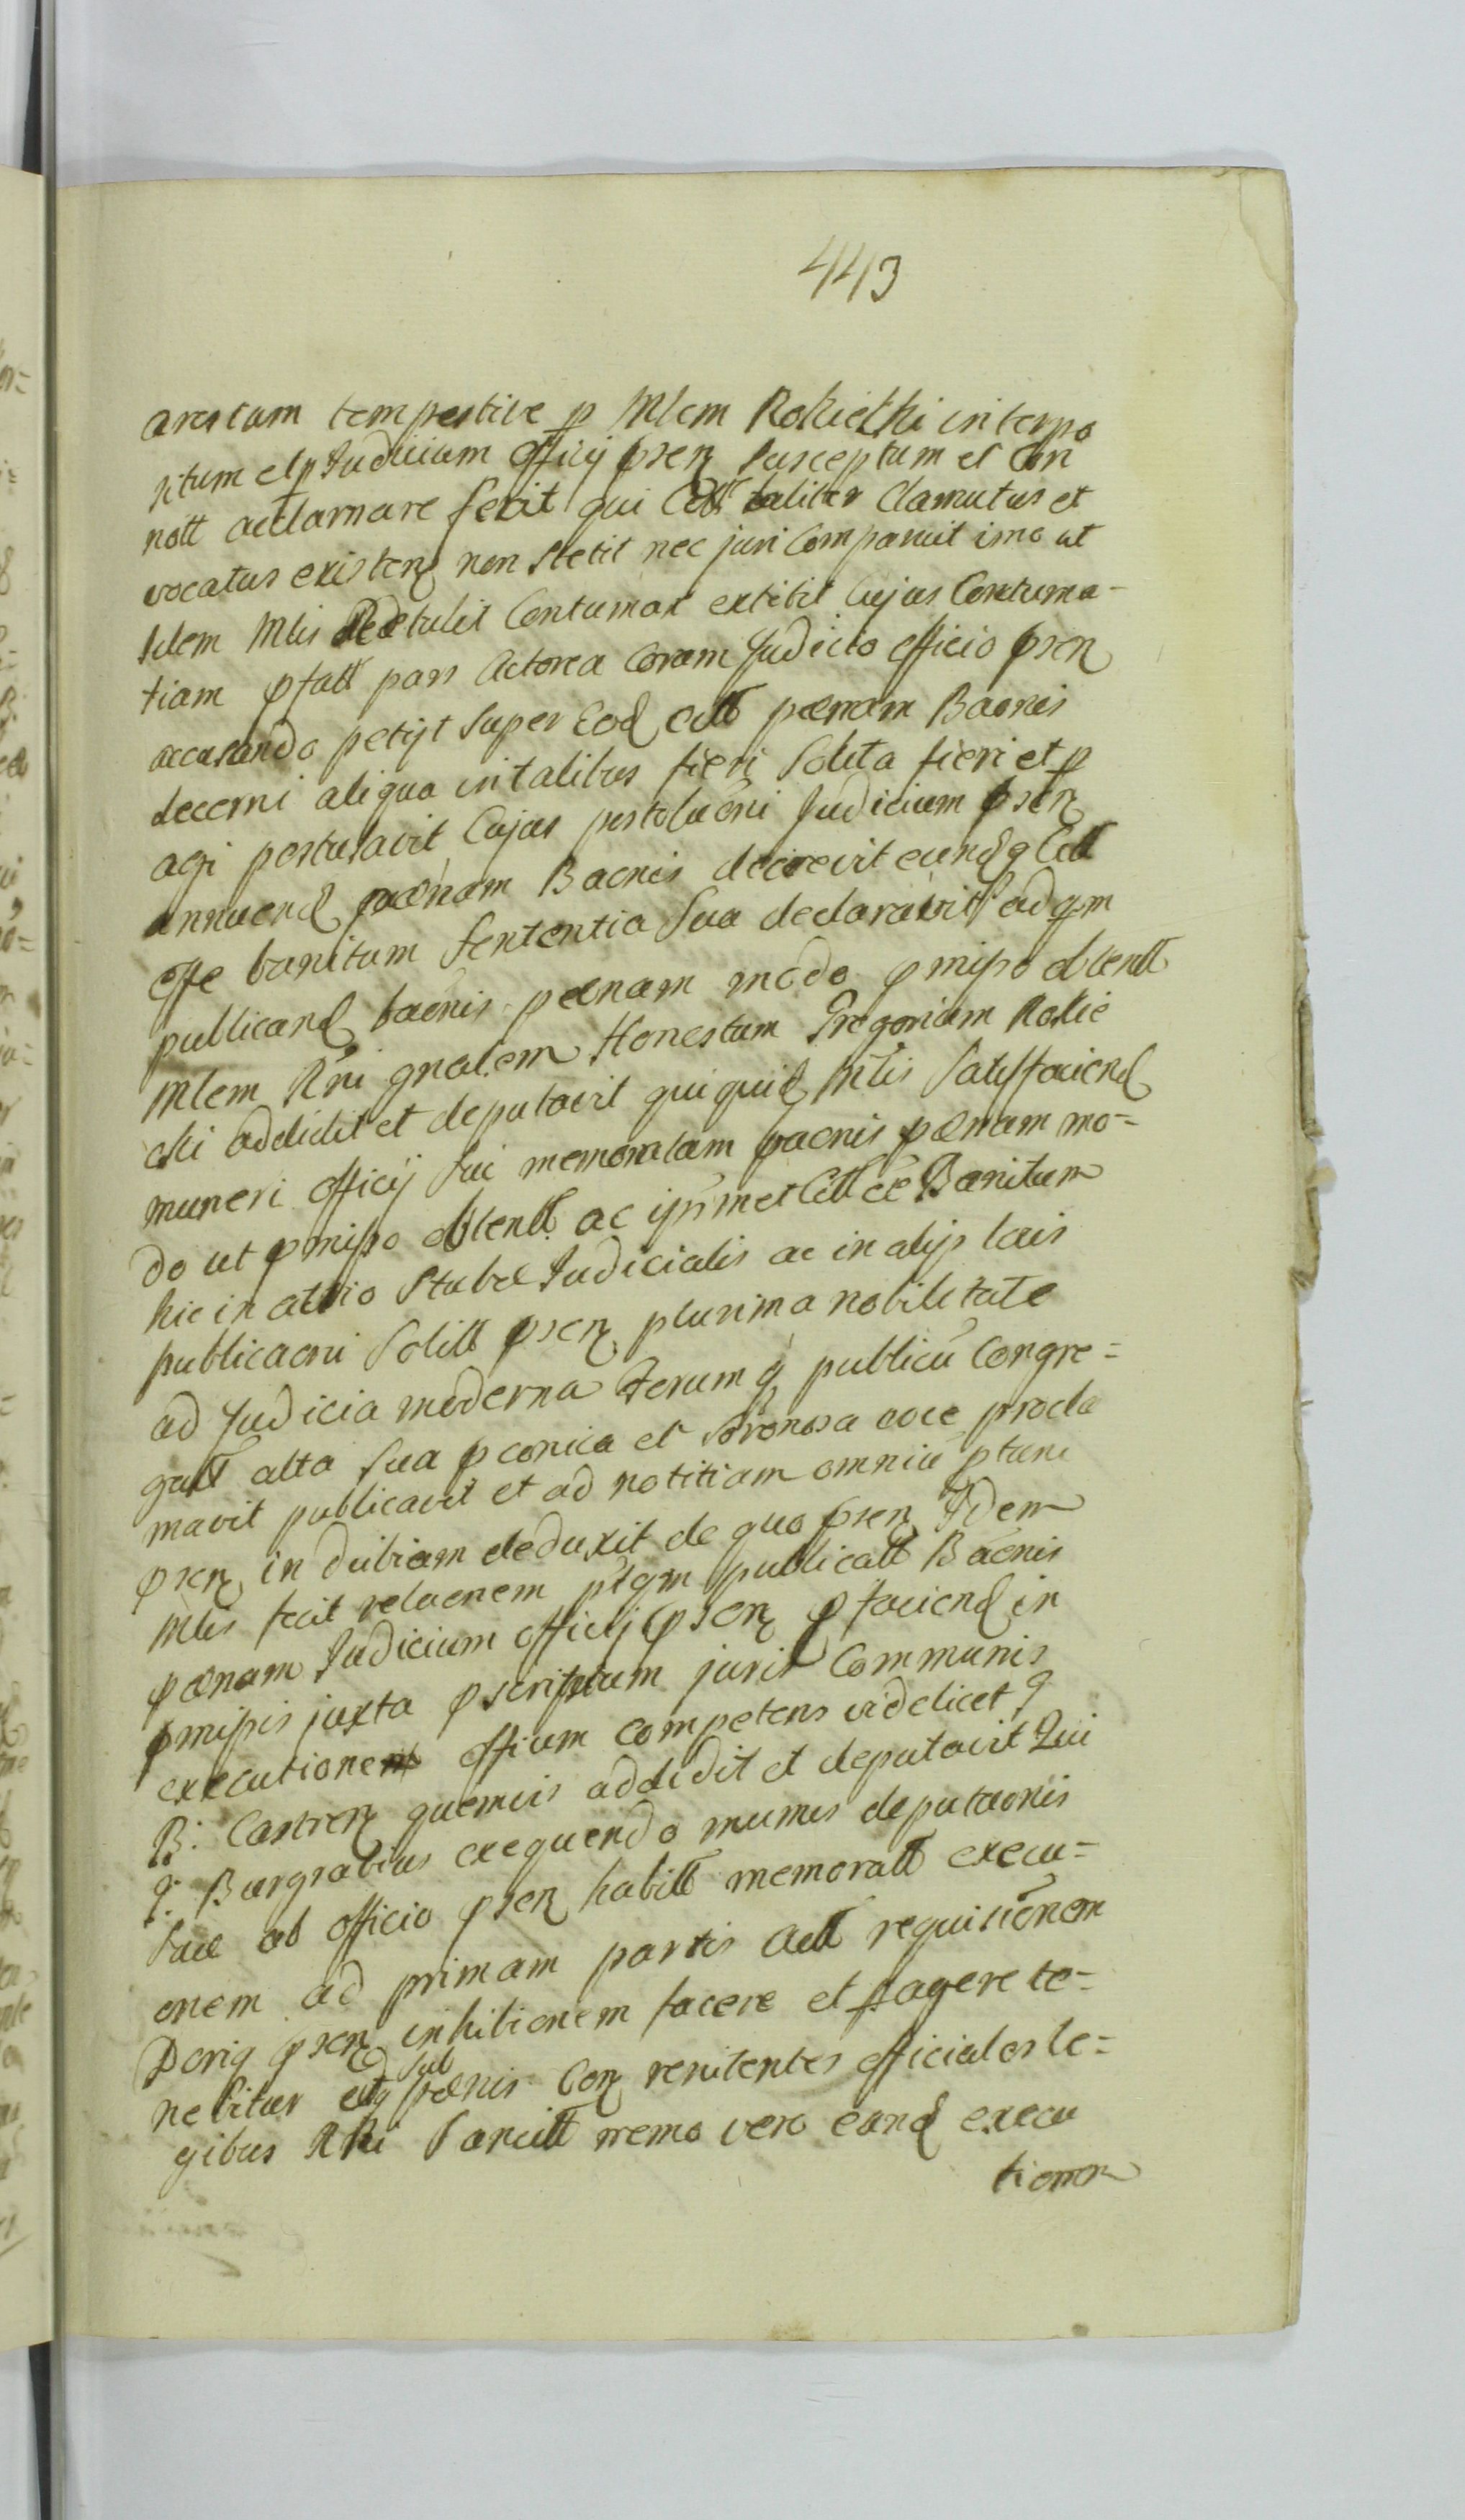 443
arestam tempestive p Mlem Rokietki interpo
situm et p Judicium officij psen susceptum et Con
nott acclamare fecit qui Citt taliter Clamatus et
vocatus existen non stetit nec juri Comparuit imo ut
idem Mlis Retulit Contumax extitit Cujus Contuma-
tiam pfatt pars Actorea Coram Judicio officio psen
accusando petijt super Eod Citt pænam Baonis
decerni aliqua in talibus fieri solita fieri et p
agi postulavit Cujus postulaoni Judicium psen
annuend pænam Baonis decrevit eundq Citt
esse banitum sententia sua declaravit ad qm
publicand baonis pænam modo pmisso obtentt
Mlem Rni gnalem Honestum Gregorium Rokie
cki addidit et deputavit qui quid Mlis satisfaciend
muneri officij sui memoratam baonis pænam mo-
do ut pmisso obtentt ac ipsumet Citt ee Banitum
hic in atrio Stubæ Judicialis ac in alijs locis
publicaoni solitt psen plurima nobilitate
ad Judicia moderna Forumq publicu Congre-
gatt alta sua pconica et sonorosa voce procla
mavit publicavit et ad notitiam omniu ptum
psen indubiam deduxit de quo psen Idem
Mlis fecit relaonem p qm publicatt Baonis
pænam Judicium officij psen p faciend in
pmissis juxta pscriptum juris Communis
executionem offium competens videlicet
B: Castren quemvis addidit et deputavit Qui
g: Burgrabius exequendo munus deputaonis
suæ ab officio psen habitt memoratt execu-
onem ad primam partis Actt requisionem
Porig psen inhibionem facere et pagere te-
nebitur idq sub pænis Con renitentes officiales le-
gibus Rni Sancitt nemo vero eand execu
tionem